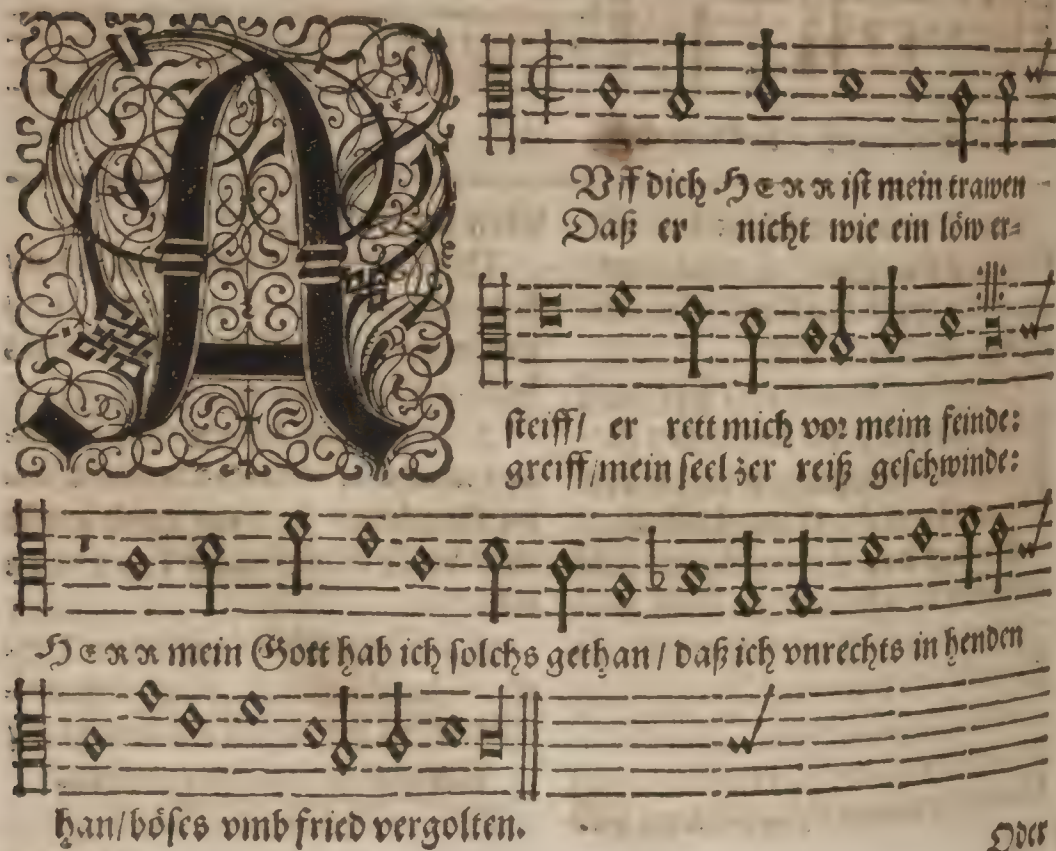 AVff dich HERR ist mein trawen
Daß er nicht wie ein löw er=
steiff/ er rett mich vor meim feinde:
greiff/mein seel zer reiß geschwinde:
HERR mein Gott hab ich solchs gethan / daß ich vnrechts in henden
han/böses vmb fried vergolten.
Oder